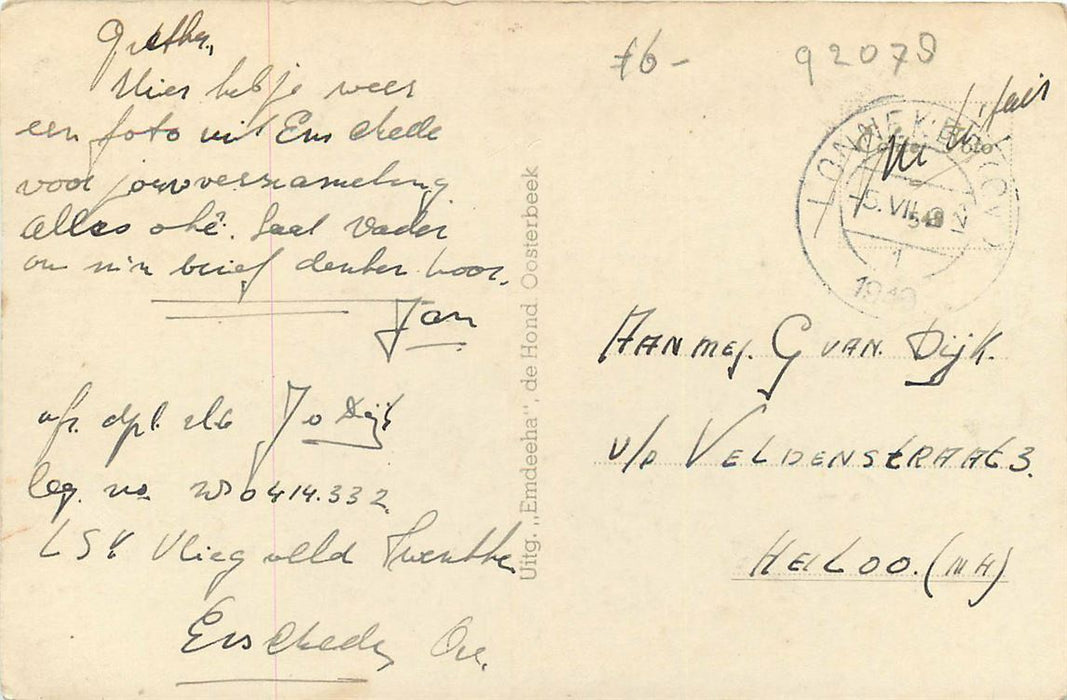 Hier heb je weer
een foto uit Enschede
voor jouw verzameling
Alles oké. Laat Vader
om m'n brief denken hoor.
Jan
afz. dpl. sld. J v Dijk
leg. no. 260414.332
LSK Vliegveld Twenthe
Enschede, Ov.
Uitg. „Emdeeha", de Hond Oosterbeek
f6-
92078
LONNEKER (OV)
5.VII.
1949
Echte Foto
AAN mej. G VAN. DijK.
v/d VELDENSTRAAT 3.
HEILOO. (NH)